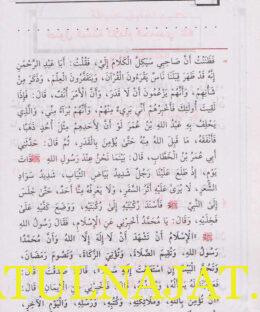 فَظَنَنْتُ أَنَّ صَاحِبِي سَيَكِلُ الْكَلَامَ إِلَيَّ، فَقُلْتُ: أَبَا عَبْدِ الرَّحْمَنِ
إِنَّهُ قَدْ ظَهَرَ قِبَلَنَا نَاسٌ يَقْرَءُونَ الْقُرْآنَ، وَيَتَقَفَّرُونَ الْعِلْمَ، وَذَكَرَ مِنْ
شَأْنِهِمْ، وَأَنَّهُمْ يَزْعُمُونَ أَنْ لَا قَدَرَ، وَأَنَّ الْأَمْرَ أُنُفٌ، قَالَ: فَإِذَا
لَقِيتَ أُولَئِكَ فَأَخْبِرْهُمْ أَنِّي بَرِيءٌ مِنْهُمْ، وَأَنَّهُمْ بُرَآءُ مِنِّي، وَالَّذِي
يَحْلِفُ بِهِ عَبْدُ اللهِ بْنُ عُمَرَ لَوْ أَنَّ لِأَحَدِهِمْ مِثْلَ أُحُدٍ ذَهَبًا،
فَأَنْفَقَهُ، مَا قَبِلَ اللهُ مِنْهُ حَتَّى يُؤْمِنَ بِالْقَدَرِ، ثُمَّ قَالَ: حَدَّثَنِي
أَبِي عُمَرُ بْنُ الْخَطَّابِ، قَالَ: بَيْنَمَا نَحْنُ عِنْدَ رَسُولِ اللهِ ﷺ ذَاتَ
يَوْمٍ، إِذْ طَلَعَ عَلَيْنَا رَجُلٌ شَدِيدُ بَيَاضِ الثِّيَابِ، شَدِيدُ سَوَادِ
الشَّعَرِ، لَا يُرَى عَلَيْهِ أَثَرُ السَّفَرِ، وَلَا يَعْرِفُهُ مِنَّا أَحَدٌ، حَتَّى جَلَسَ
إِلَى النَّبِيِّ ﷺ فَأَسْنَدَ رُكْبَتَيْهِ إِلَى رُكْبَتَيْهِ، وَوَضَعَ كَفَّيْهِ عَلَى
فَخِذَيْهِ، وَقَالَ: يَا مُحَمَّدُ أَخْبِرْنِي عَنِ الْإِسْلَامِ، فَقَالَ رَسُولُ اللهِ
ﷺ: «الْإِسْلَامُ أَنْ تَشْهَدَ أَنْ لَا إِلَهَ إِلَّا اللهُ وَأَنَّ مُحَمَّدًا
رَسُولُ اللهِ، وَتُقِيمَ الصَّلَاةَ، وَتُؤْتِيَ الزَّكَاةَ، وَتَصُومَ رَمَضَانَ،
وَتَحُجَّ الْبَيْتَ إِنِ اسْتَطَعْتَ إِلَيْهِ سَبِيلًا»، قَالَ: صَدَقْتَ، قَالَ
الْإِيمَانِ، قَالَ:
«أَنْ تُؤْمِنَ بِاللهِ، وَمَلَائِكَتِهِ، وَكُتُبِهِ، وَرُسُلِهِ، وَالْيَوْمِ الْآخِرِ،
ATULNAJAT.